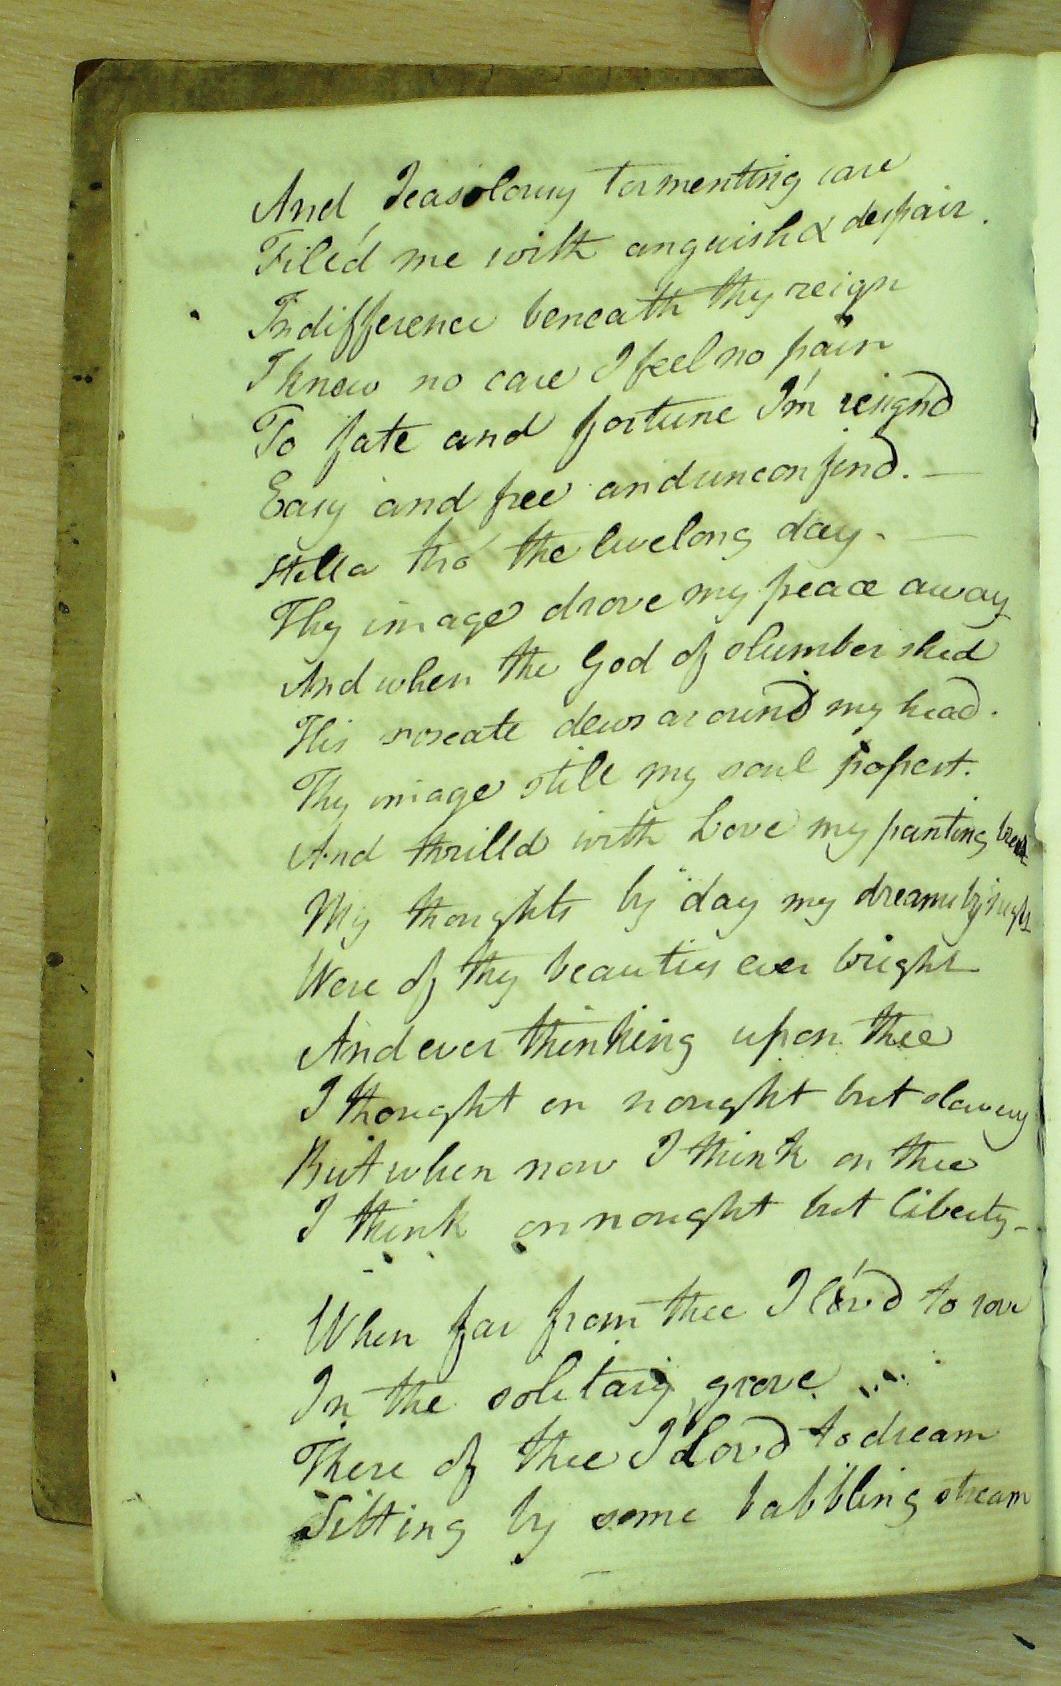 And Jeasolousy tormenting care
File'd me with anguish & despair.
Indifference beneath thy reign
I know no care I feel no pain
To fate and fortune I'm resign'd
Easy and free and unconfind. —
Stella tho' the livelong day. —
Thy image drove my peace away
And when the God of slumber shed
His roseate dews around my head.
Thy image still my soul possest.
And thrilld with Love my panting breast
My thoughts by day my dreams by night
Were of thy beauties ever bright
And ever thinking upon thee
I thought on nought but slavery
But when now I think on thee
I think on nought but liberty —
When far from thee I lov'd to rove
In the solitary grove
There of thee I lov'd to dream
Sitting by some babbling stream